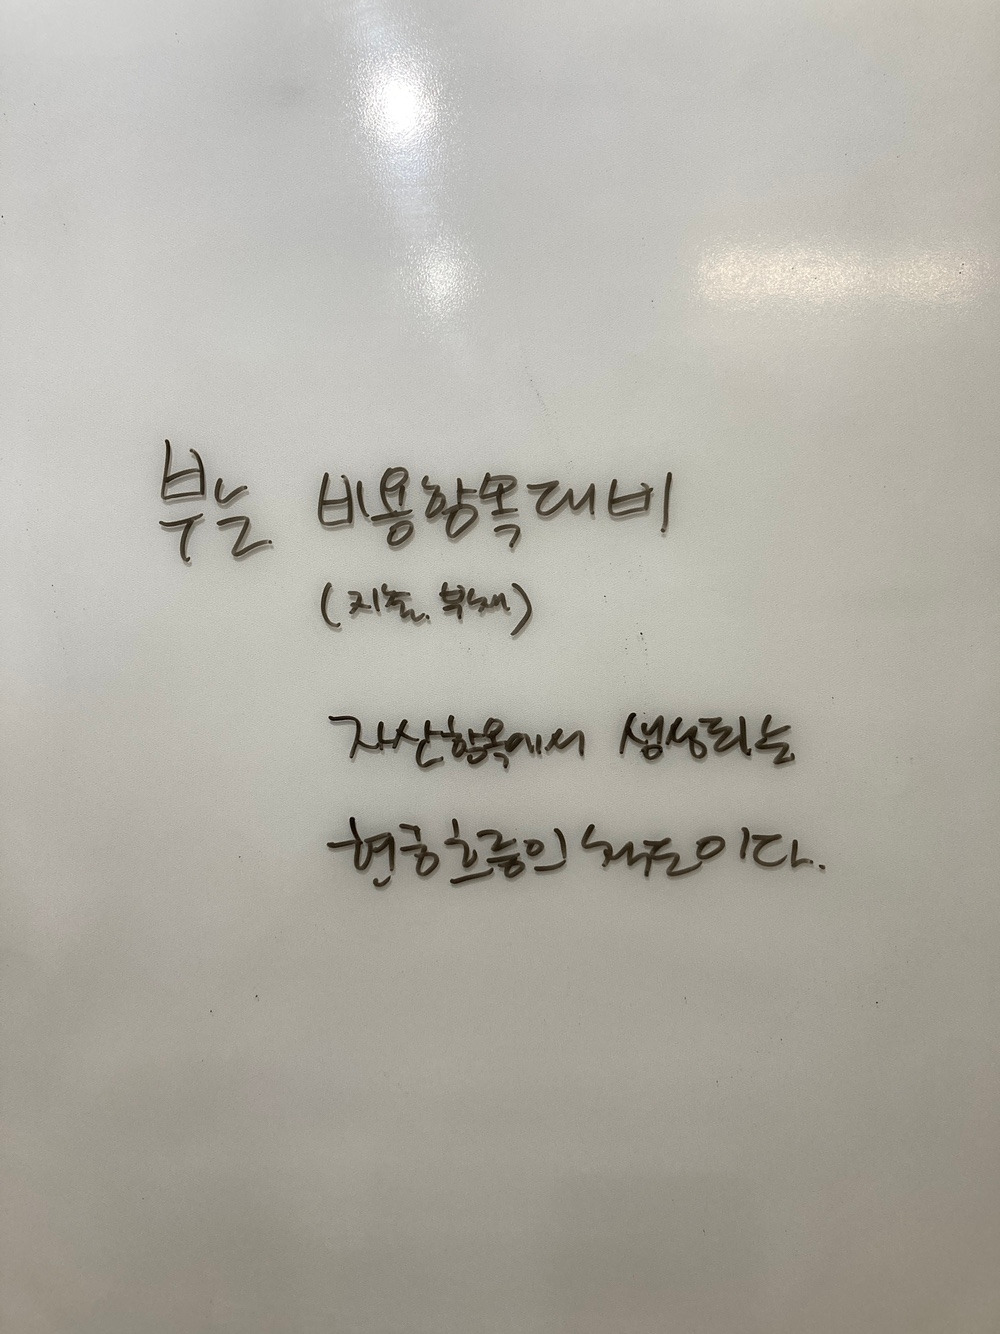 부는 비용항목대비
(지출. 부채)
자산항목에서 생성되는
현금흐름의 척도이다.